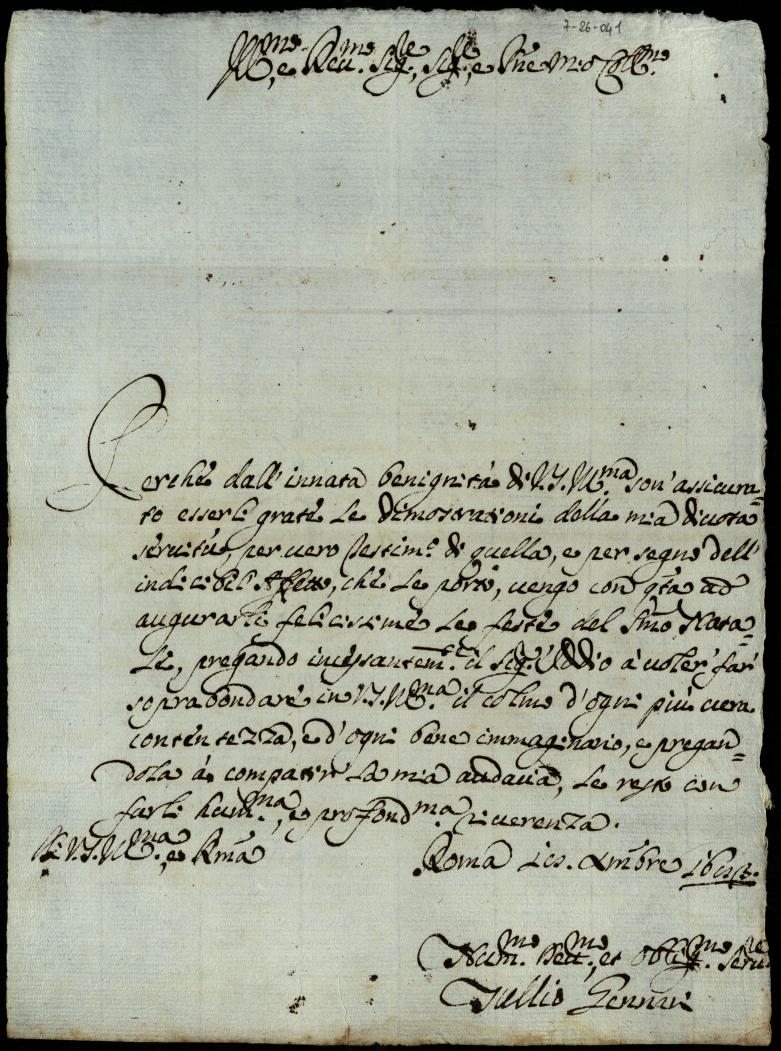 7-26-041
Ill.mo, e Rev.mo Sig.re, Sig.re, e Pne mio Coll.mo
Perche dall'innata benignità di V.S. Ill.ma son' assicura=
to esserli grate le dimostrationi della mia divota
servitù, per vero testim.o di quella, e per segno dell'
indicibil' affetto, che le porto, vengo con qta ad
augurarli felicissime le feste del Smo Nata=
le, pregando incessantem.te il Sig.re Iddio à voler' far'
soprabondare in V.S. Ill.ma il colmo d'ogni più vera
contentezza, e d'ogni bene immaginario, e pregan=
dola à compatir' la mia audacia, le resto con
farli hum.ma, e profond.ma riverenza.
Di V.S. Ill.ma, e Rma
Roma Xmbre
Hum.mo Dev.mo, et Oblig.mo Serv.re
Tullio